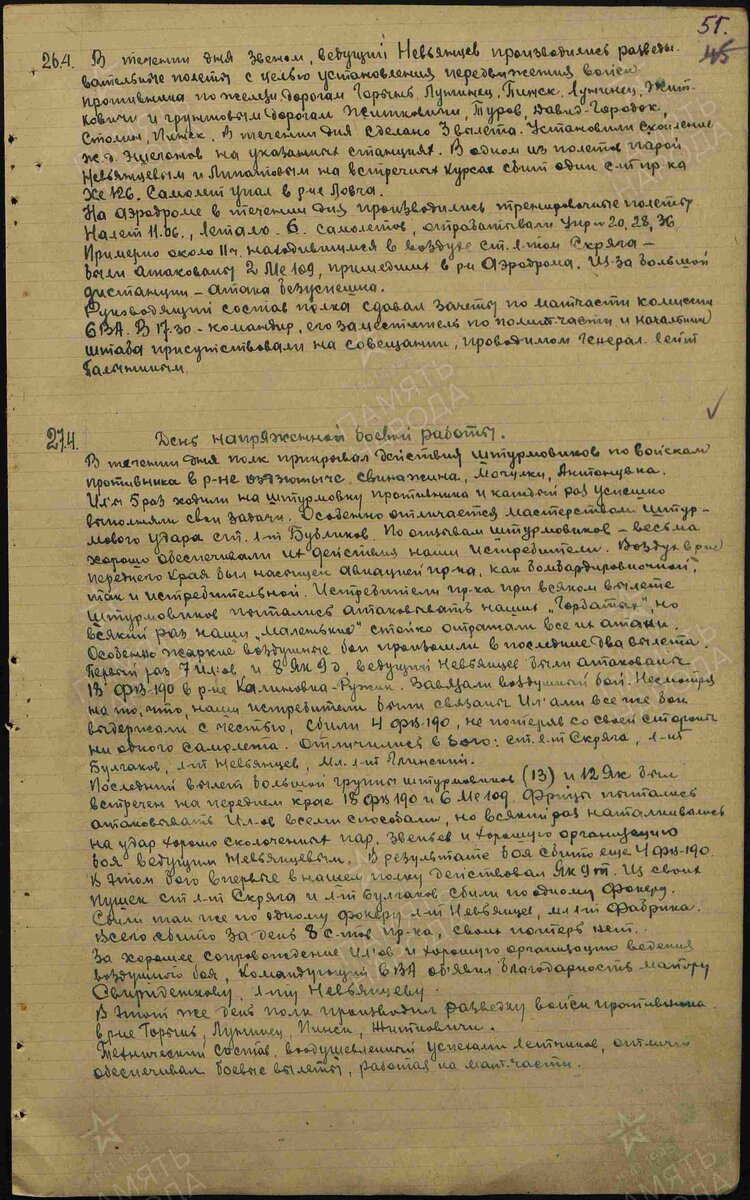 51.
45
26.4. В течении дня звеном, ведущий Невьянцев производились разведы-
вательные полеты с целью установления передвижения войск
противника по желез. дорогам Горынь Лунинец, Пинск, Лунинец, Жит-
ковичи и грунтовым дорогам Житковичи, Туров, Давид-Городок,
Столин, Пинск. В течении дня сделано 3 вылета. Установили скопление
ж.д. эшелонов на указанных станциях. В одном из полетов парой
Невьянцевым и Липатовым на встречных курсах сбит один с-т пр-ка
Хе 126. Самолет упал в р-не Ловча.
На аэродроме в течении дня производились тренировочные полеты
Налет 11.06, летало 6 самолетов, отрабатывали упр-я 20, 28, 36
Примерно около 11 ч. находившимся в воздухе ст. л-том Скряга –
были атакованы 2 Ме 109, пришедших в р-н Аэродрома. Из-за большой
дистанции – атака безуспешна.
Руководящий состав полка сдавал зачеты по матчасти комиссии
6 ВА. В 17.30 – командир, его заместитель по полит.части и начальник
штаба присутствовали на совещании, проводимом Генерал. лейт
27.4. День напряженной боевой работы.
В течении дня полк прикрывал действия штурмовиков по войскам
противника в р-не Мочулки, Антоновка.
Ил'ы 5 раз ходили на штурмовку противника и каждый раз успешно
выполняли свои задачи. Особенно отличается мастерством штур-
мового удара ст. л-т Бубликов. По отзывам штурмовиков – весьма
хорошо обеспечивали их действия наши истребители. Воздух в р-не
переднего края был насыщен авиацией пр-ка, как бомбардировочной,
так и истребительной. Истребители пр-ка при всяком вылете
штурмовиков пытались атаковывать наших "Горбатых", но
всякий раз наши "Маленькие" стойко отражали все их атаки.
Особенно жаркие воздушные бои произошли в последние два вылета.
Первый раз 7 Ил'ов и 8 Як 9 д, ведущий Невьянцев были атакованы
18 ФВ-190 в р-не Калиновка-Ружин. Завязали воздушный бой. Несмотря
на то, что, наши истребители были связаны Ил'ами все же бой
выдержали с честью, сбили 4 ФВ-190, не потеряв со своей стороны
ни одного самолета. Отличились в бою: ст. л-т Скряга, л-т
Булгаков, л-т Невьянцев, мл. л-т Глинский.
Последний вылет большой группы штурмовиков (13) и 12 Як был
встречен на переднем крае 18 ФВ 190 и 6 Ме 109. Фрицы пытались
атаковывать Ил-ов всеми способами, но всякий раз наталкивались
на удар хорошо сколоченных пар. Звеньев и хорошую организацию
боя ведущим Невьянцевым. В результате боя сбито еще 4 ФВ-190.
В этом бою впервые в нашем полку действовал Як 9 т. Из своих
пушек ст л-т Скряга и л-т Булгаков сбили по одному фокеру.
Сбили так же по одному фокеру л-т Невьянцев, мл л-т Фабрика.
Всего сбито за день 8 с-тов пр-ка, своих потерь нет.
За хорошее сопровождение Ил'ов и хорошую организацию ведения
воздушного боя, Командующий 6 ВА об'явил благодарность майору
Свириденкову, л-ту Невьянцеву.
В этот же день полк производил разведку войск противника
в р-не Горынь, Лунинец, Пинск, Житковичи.
Технический состав, воодушевленный успехами летчиков, отлично
обеспечивал боевые вылеты, работая на мат.части.